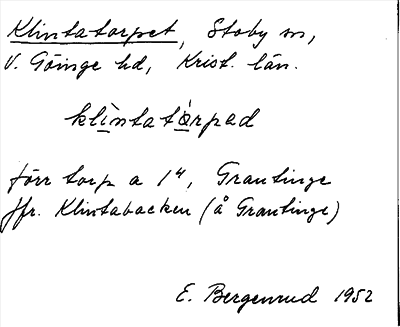 Klintatorpet, Stoby sn,
V. Göinge hd, Krist. län.
klìntatòrpad
förr torp a 1⁴, Grantinge
jfr. Klintabacken (å Grantinge)
E. Bergenrud 1952